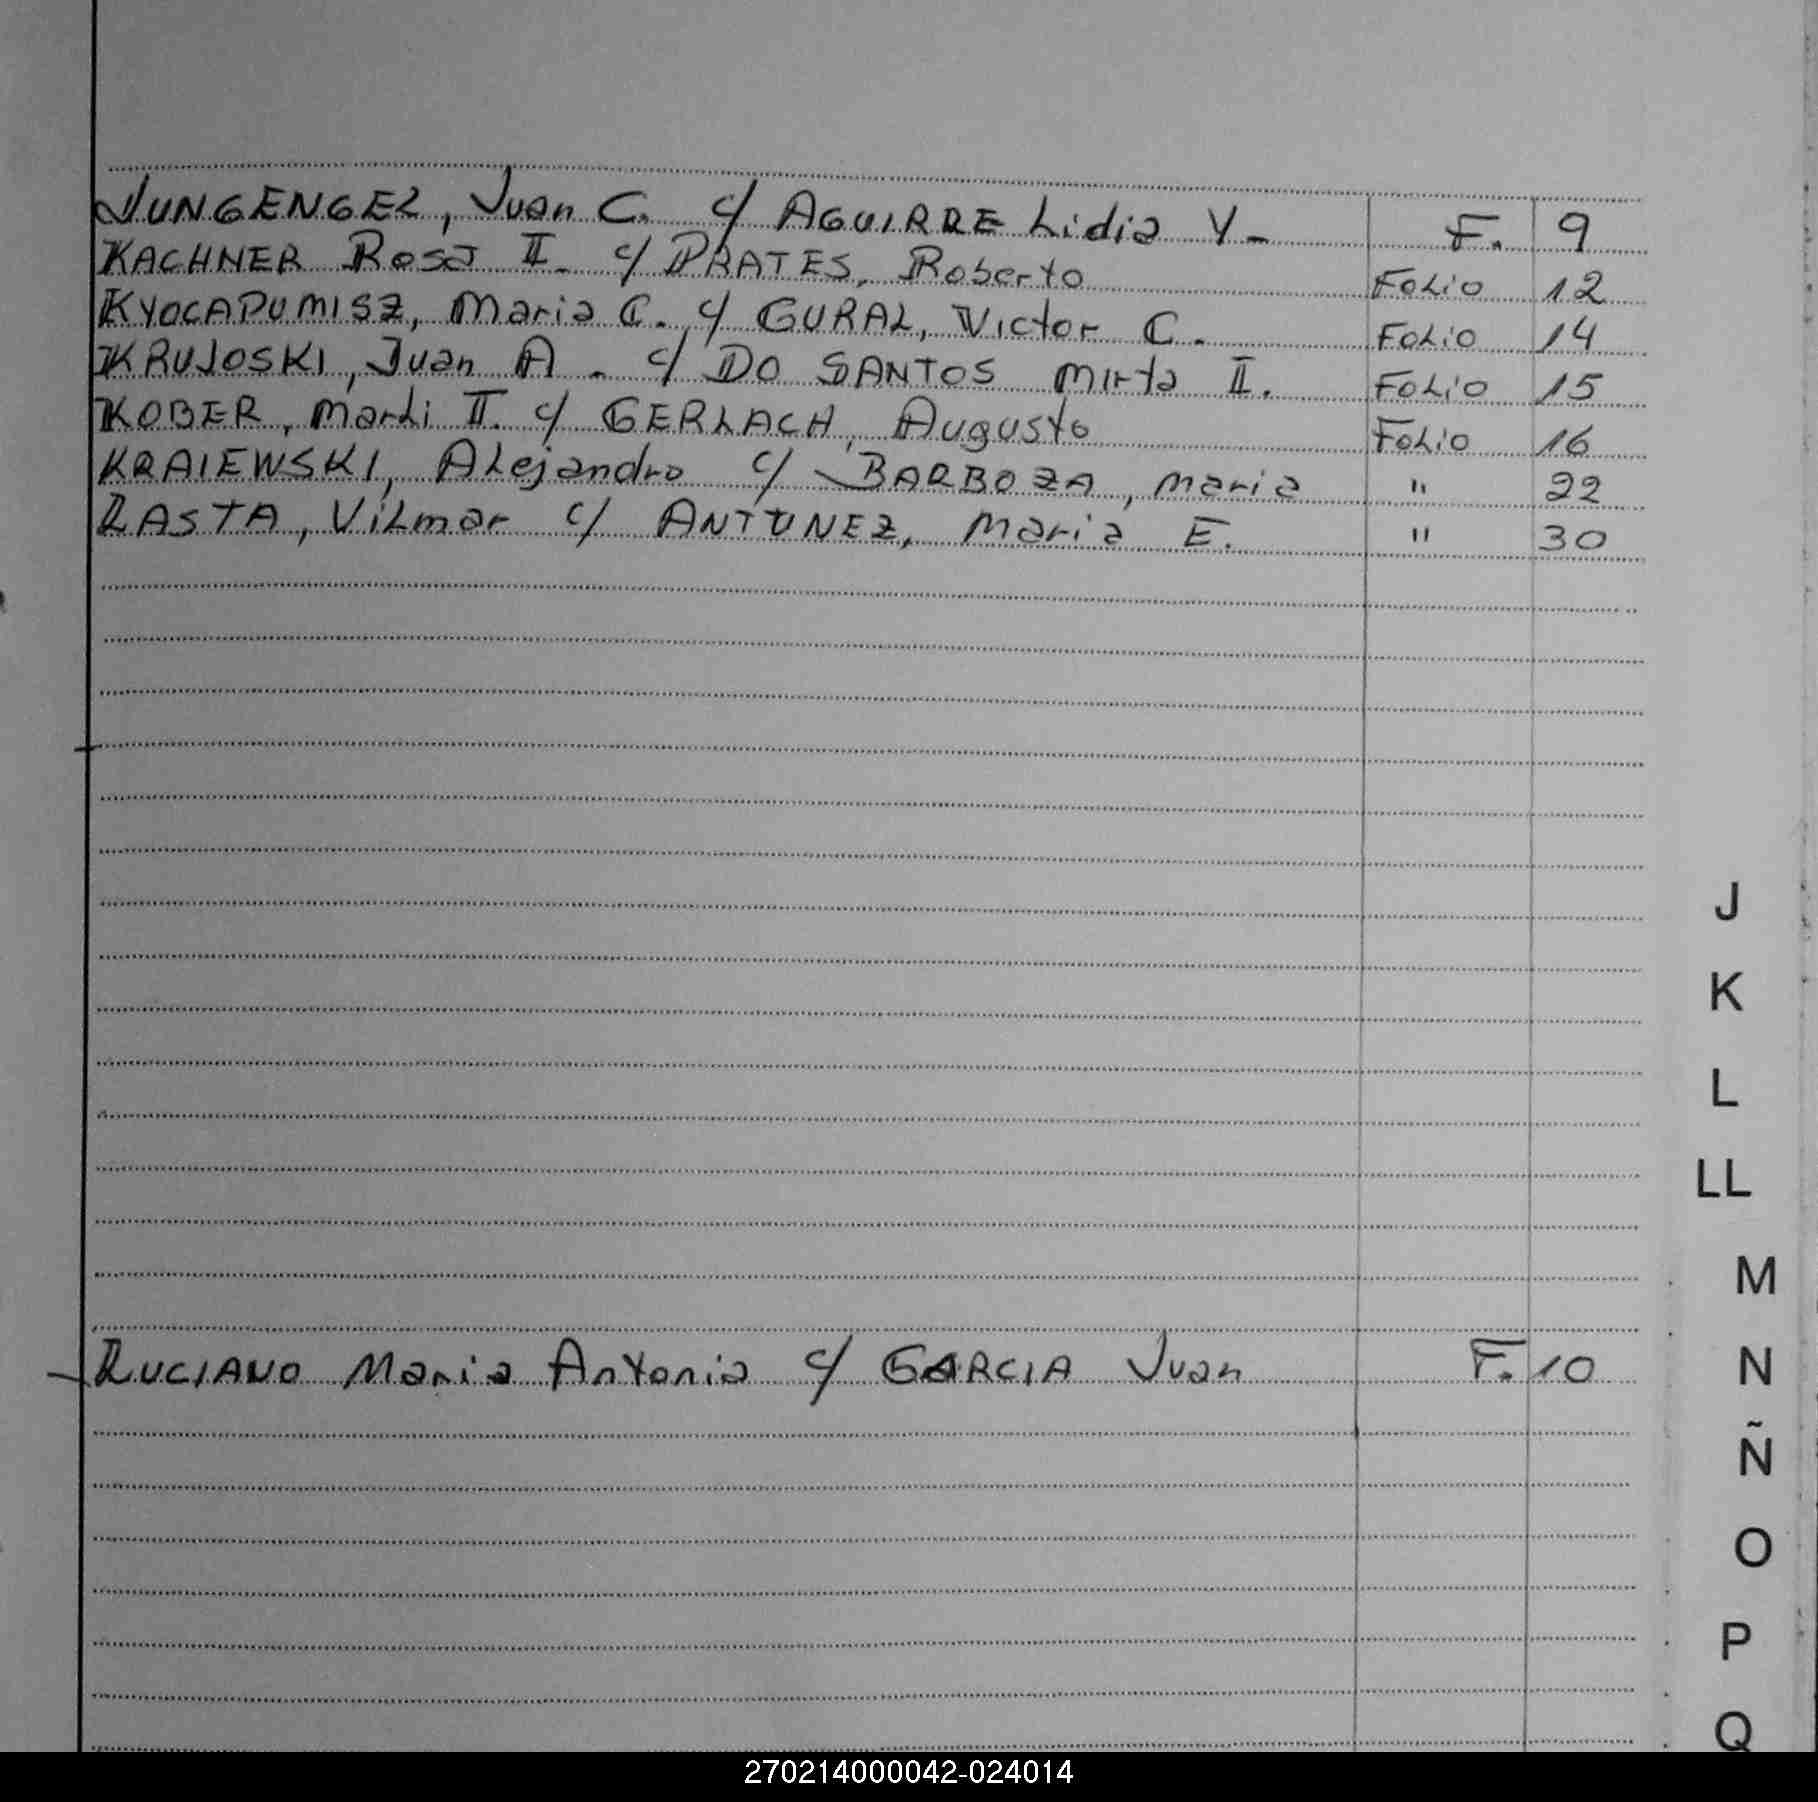 JUNGENGEL, Juan C. c/ AGUIRRE Lidia Y- F. 9
KACHNER Rosa I. c/ PRATES, Roberto Folio 12
KYOCAPUMISZ, Maria C. c/ GURAL, Victor C. Folio 14
KRUJOSKI, Juan A. c/ DO SANTOS Mirta I. Folio 15
KOBER, Marli I. c/ GERLACH, Augusto Folio 16
KRAIEWSKI, Alejandro c/ BARBOZA, Maria " 22
LASTA, Vilmar c/ ANTUNEZ, Maria E. " 30
J
K
L
LL
M
LUCIANO Maria Antonia c/ GARCIA Juan F. 10
N
Ñ
O
P
Q
270214000042-024014